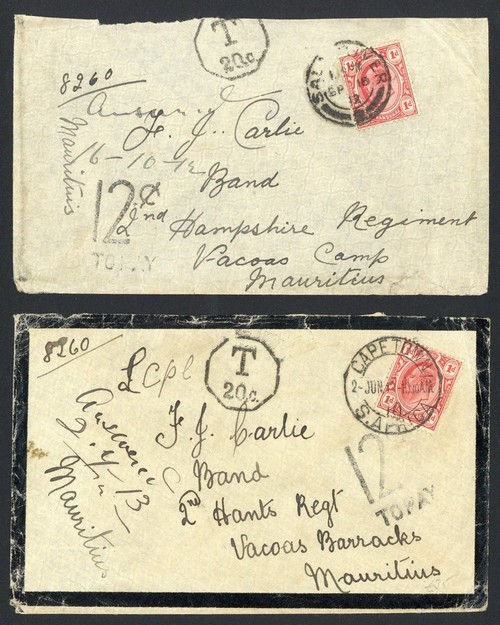 T
20c.
SALT RIVER
SP 18
12
1d 1d
8260
Answered
F. J. Carlie
Mauritius
16-10-12
Band
12c
2nd Hampshire Regiment
TO PAY
Vacoas Camp
Mauritius
8260
T
20c.
CAPETOWN
2-JUN 13-10 30AM
S. AFRICA
1d
LCpl
F. J. Carlie
Answered
Band
2nd Hants Regt
12
TO PAY
Vacoas Barracks
Mauritius
Mauritius